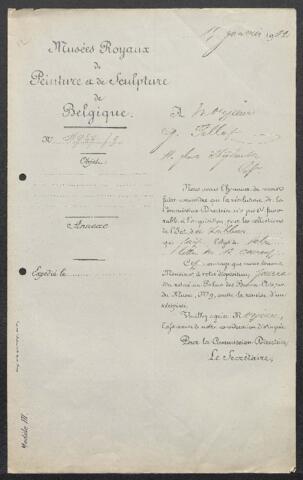 17 janvier 1902
Musées Royaux
de
Peinture et de Sculpture
de
Belgique.
N°
Objet:
Annexe
Expédié le
A Monsieur
G.
11, rue
Nous avons l'honneur de vous
faire connaître que la résolution de la
Commission Directrice n'est pas favo-
rable à l'acquisition pour les collections
de l'Etat, du tableau
qui fait l'objet de votre
lettre du 12 courant
Cet ouvrage que nous tenons,
Monsieur, à votre disposition, pourra
être retiré au Palais des Beaux-Arts, rue
du Musée, N° 9, contre la remise d'un
récépissé.
Veuillez agréer, Monsieur,
l'assurance de notre considération distinguée.
Pour la Commission Directrice,
Le Secrétaire,
Modèle III.